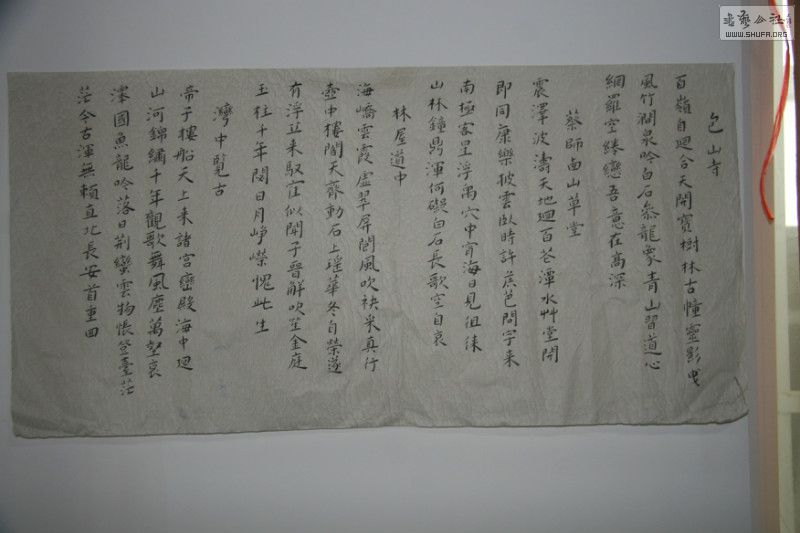 包山寺
百嶺自迴合天開寶樹林古幢靈影曳
風竹澗泉吟白石參龍象青山習道心
網羅空綣戀吾意在高深
蔡師南山草堂
震澤波濤天地迴百花潭水艸堂開
即同康樂披雲臥時許侯芭問字来
南極客星浮禹穴中宵海日見徂徠
山林鐘鼎渾何礙白石長歌空自哀
林屋道中
海嶠雲霞虛翠屏閬風吹袂米真行
壺中樓閣天齊動石上瑤華冬自榮遂
有浮丘来馭寉似聞子晉解吹笙金庭
玉柱千年閟日月崢嶸愧此生
灣中覽古
帝子樓船天上来諸宮巒殿海中迴
山河錦繡千年觀歌舞風塵萬堅哀
澤國魚龍吟落日荆蠻雲物悵登臺茫
茫今古渾無賴直北長安首重回
書藝公社
WWW.SHUFA.ORG